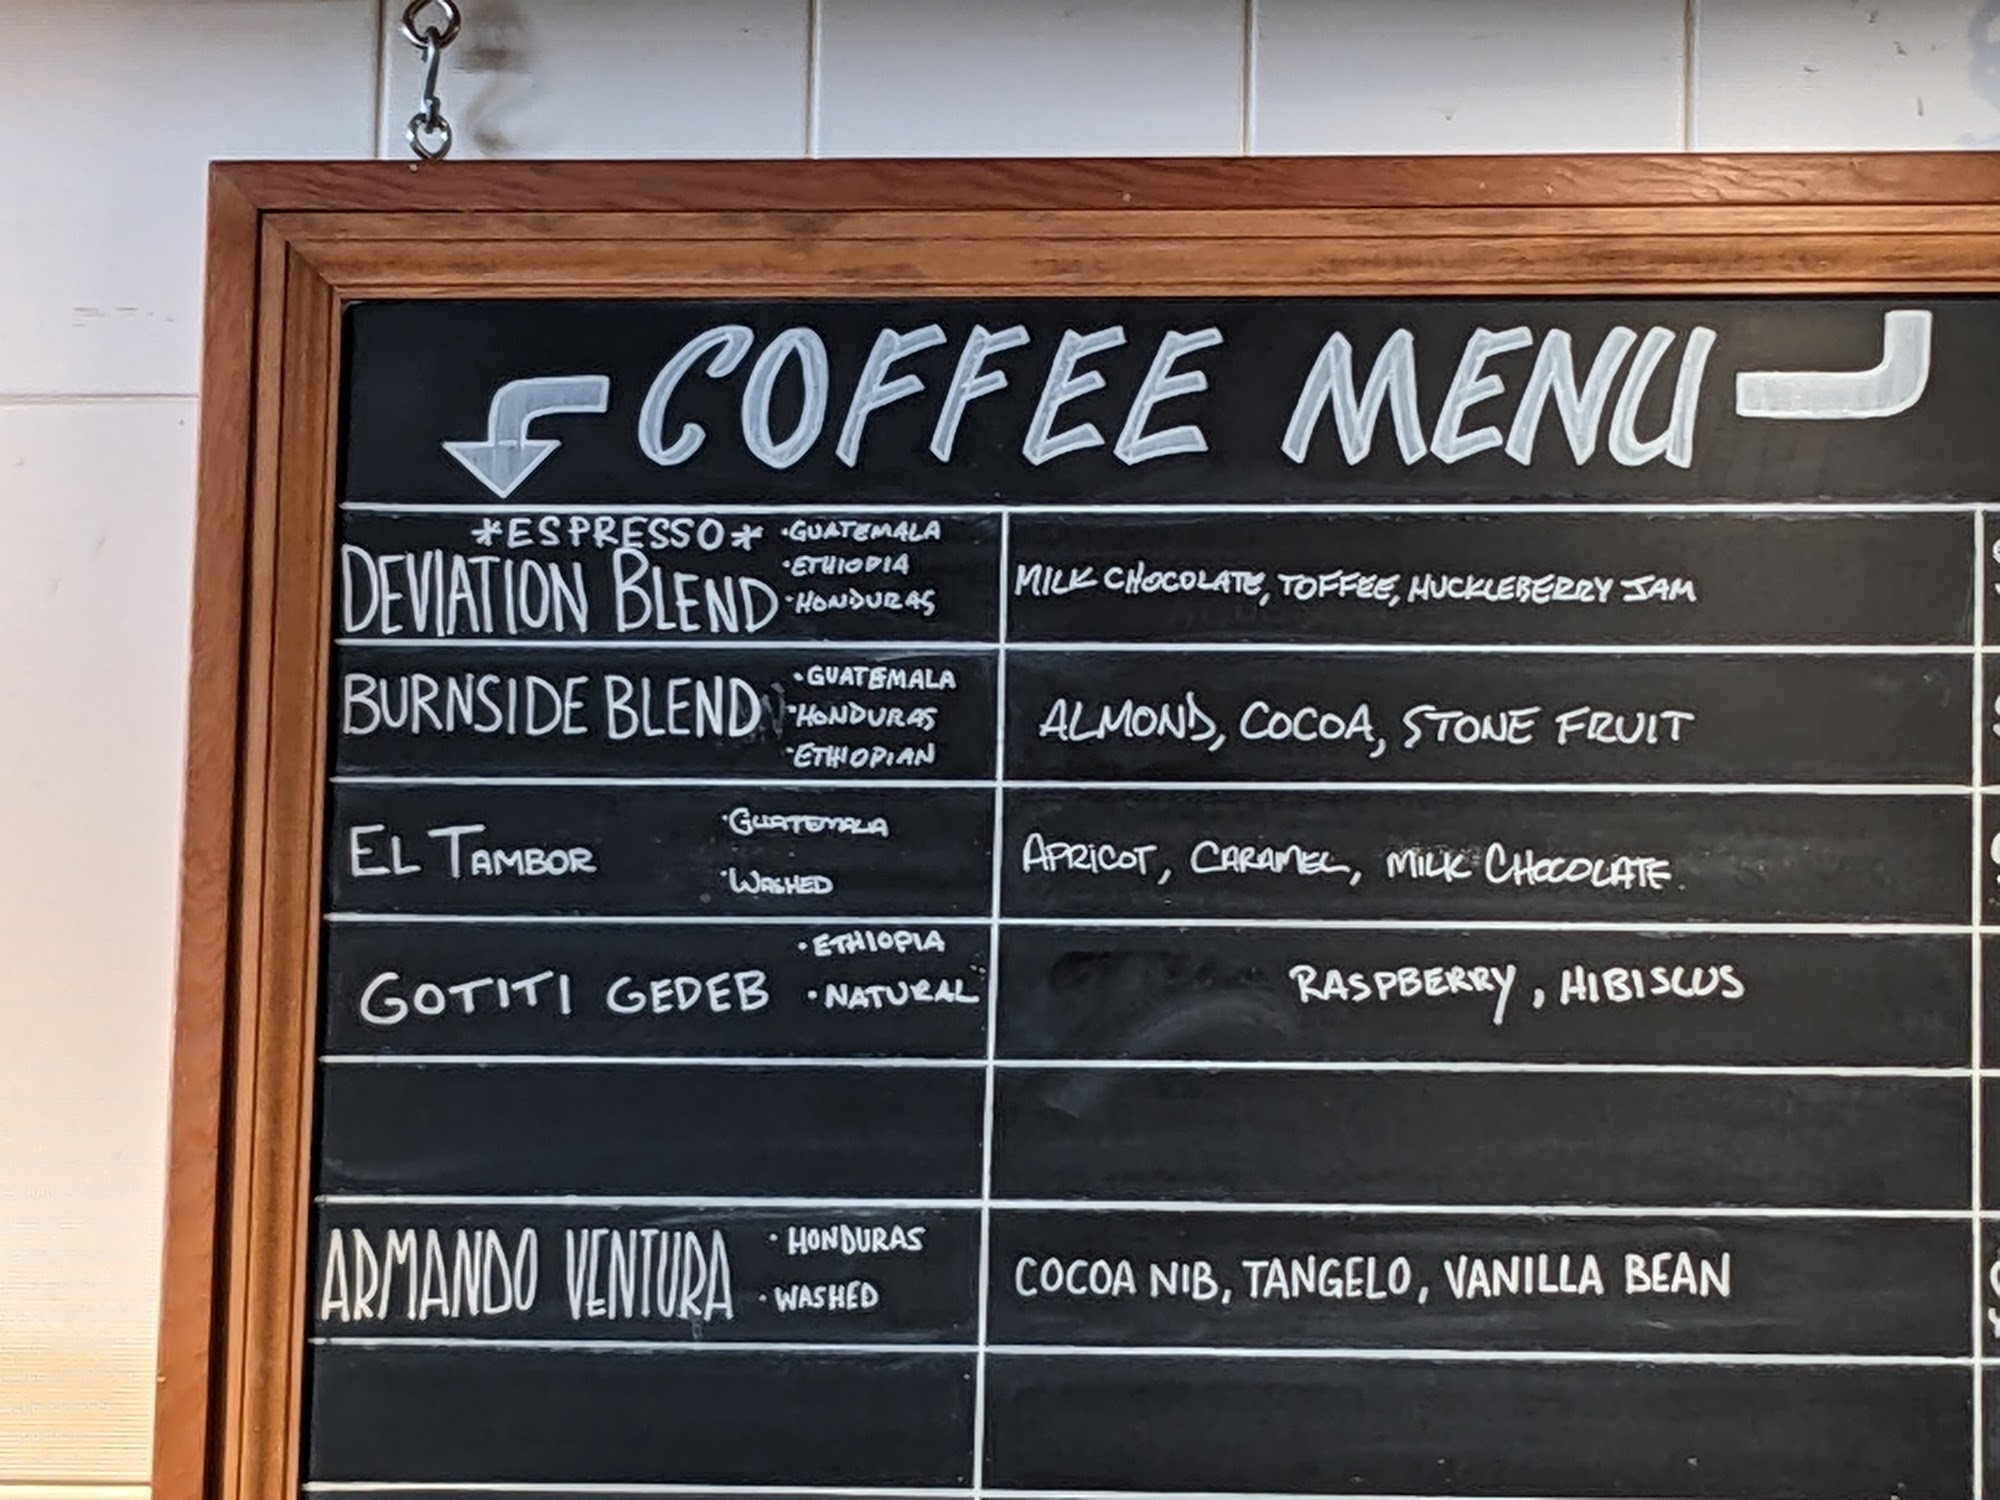 COFFEE MENU
*ESPRESSO*
DEVIATION BLEND
·GUATEMALA
·ETHIOPIA
·HONDURAS
MILK CHOCOLATE, TOFFEE, HUCKLEBERRY JAM
BURNSIDE BLEND
·GUATEMALA
·HONDURAS
·ETHIOPIAN
ALMOND, COCOA, STONE FRUIT
EL TAMBOR
·GUATEMALA
·WASHED
APRICOT, CARAMEL, MILK CHOCOLATE
GOTITI GEDEB
·ETHIOPIA
·NATURAL
RASPBERRY, HIBISCUS
ARMANDO VENTURA
·HONDURAS
·WASHED
COCOA NIB, TANGELO, VANILLA BEAN